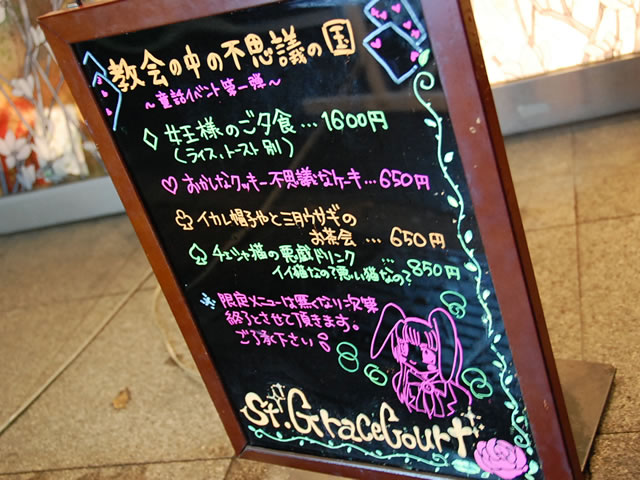 教会の中の不思議の国
～童話イベント第一弾～
♢女王様のご夕食…1600円
(ライス、トースト別)
♡おかしなクッキー不思議なケーキ…650円
♧イカレ帽子やと三月ウサギの
お茶会…650円
♤チェシャ猫の悪戯ドリンク…
イイ猫なの?悪い猫なの?850円
※限定メニューは無くなり次第
終了とさせて頂きます。
ご了承下さい
St.GraceCourt